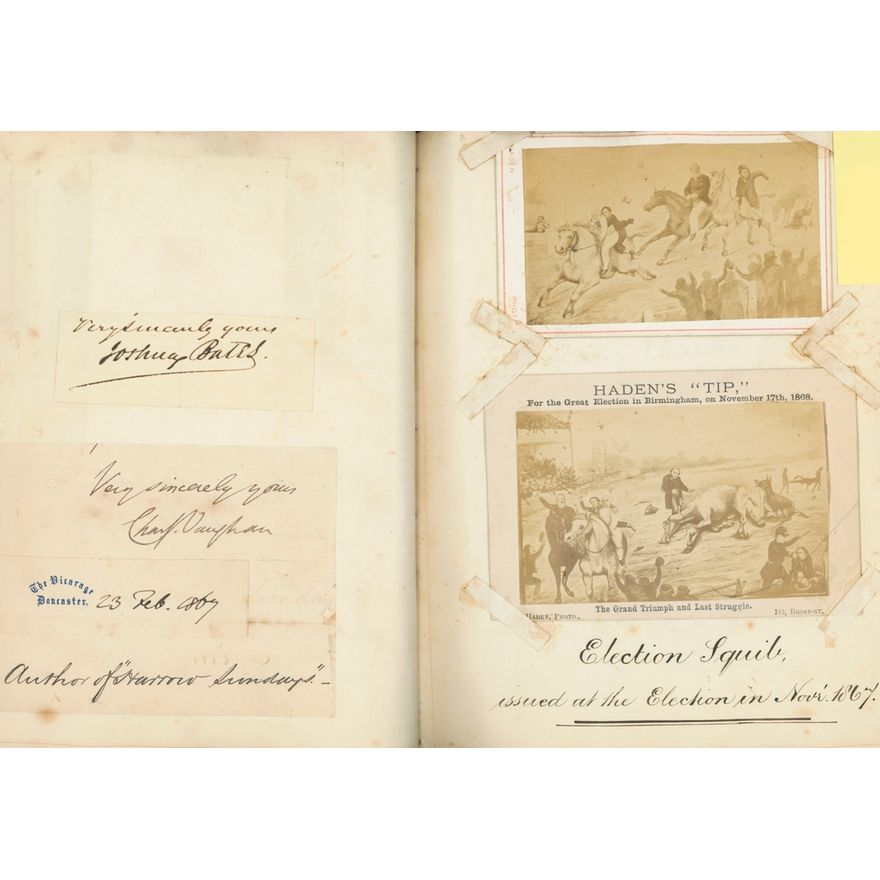 Very sincerely yours
Joshua Bates.
Very sincerely yours
Chas. J. Vaughan
The Vicarage
Doncaster.
23 Feb. 1867
Author of "Harrow Sundays." –
HADEN'S "TIP,"
For the Great Election in Birmingham, on November 17th, 1868.
The Grand Triumph and Last Struggle.
HADEN, PHOTO., 185, BROAD-ST.
Election Squib,
issued at the Election in Novr. 1867.